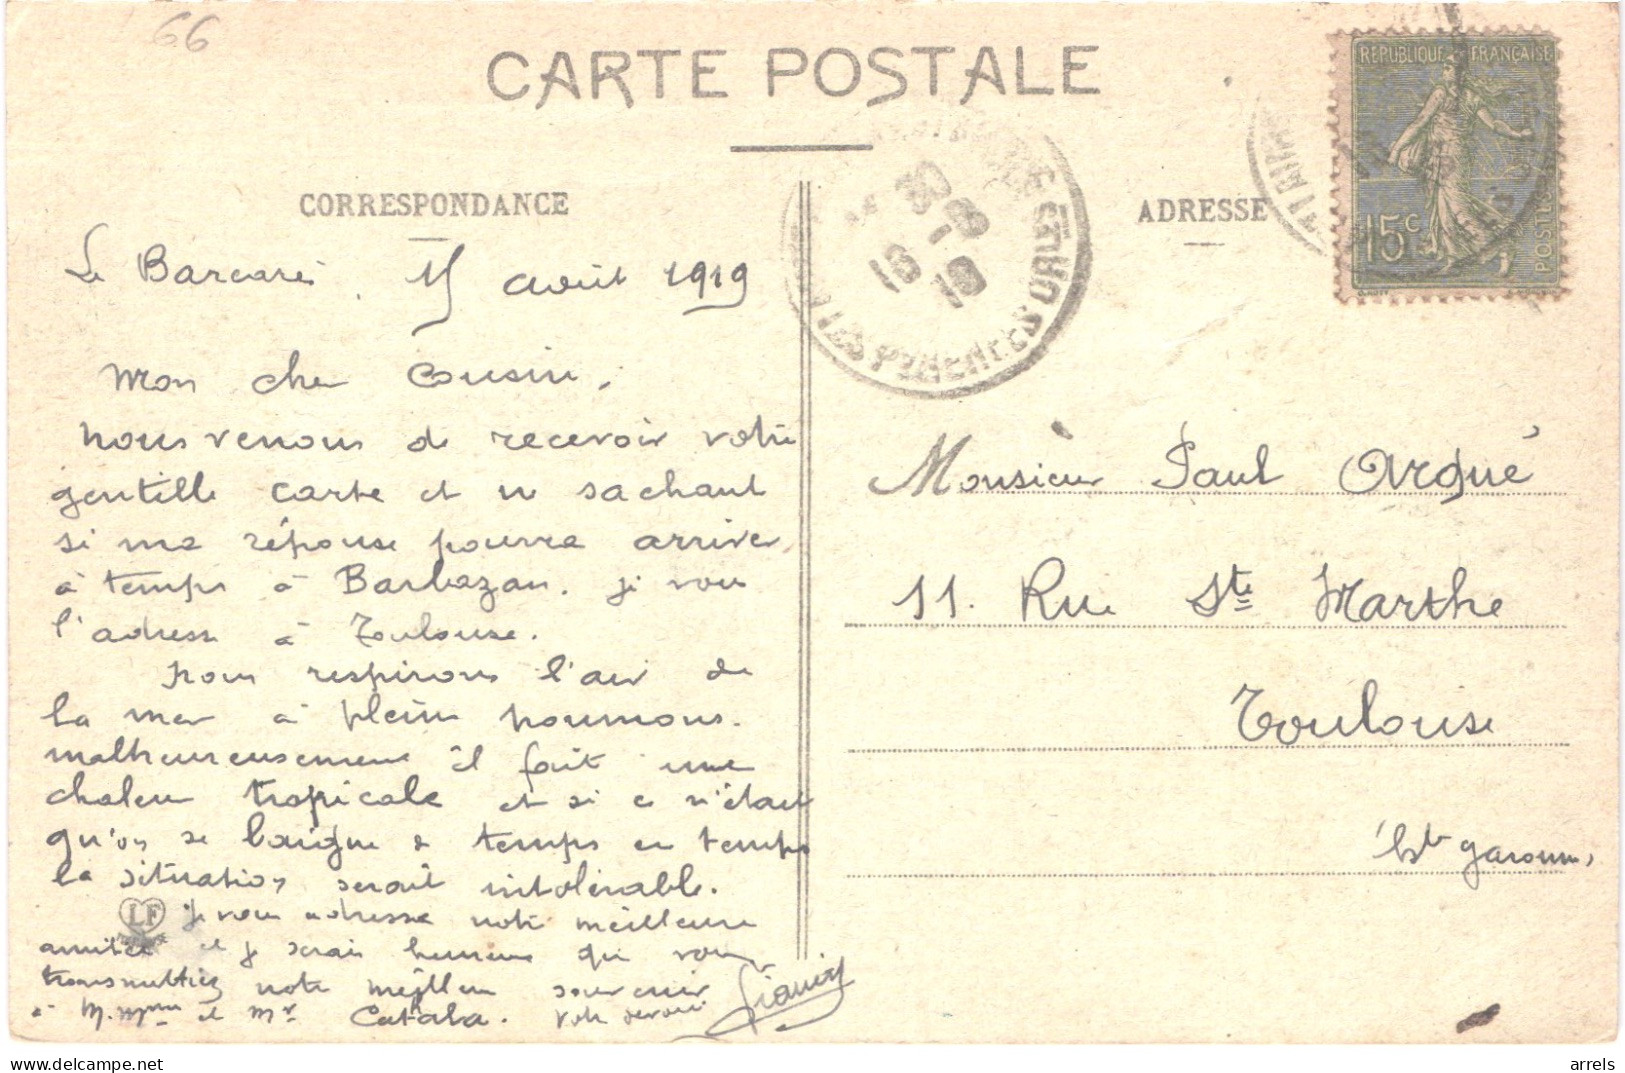 66
CARTE POSTALE
CORRESPONDANCE
ADRESSE
REPUBLIQUE FRANÇAISE
15c
POSTES
PYRENEES ORles
16 - 8
19
Le Barcarès. 15 août 1919
Mon cher Cousin,
nous venons de recevoir votre
gentille carte et ne sachant
si ma réponse pourra arriver
à temps à Barbazan. je vous
l'adresse à Toulouse.
Nous respirons l'air de
la mer à plein poumons.
malheureusement il fait une
chaleur tropicale et si ce n'était
qu'on se baigne de temps en temps
la situation serait intolérable.
LF
je vous adresse notre meilleure
amitié et je serais heureux que vous
transmettiez notre meilleur souvenir
à M. Mme et Mr Catala. Votre dévoué
Monsieur Paul Orgué
11. Rue Ste Marthe
Toulouse
Hte garonne
arrels